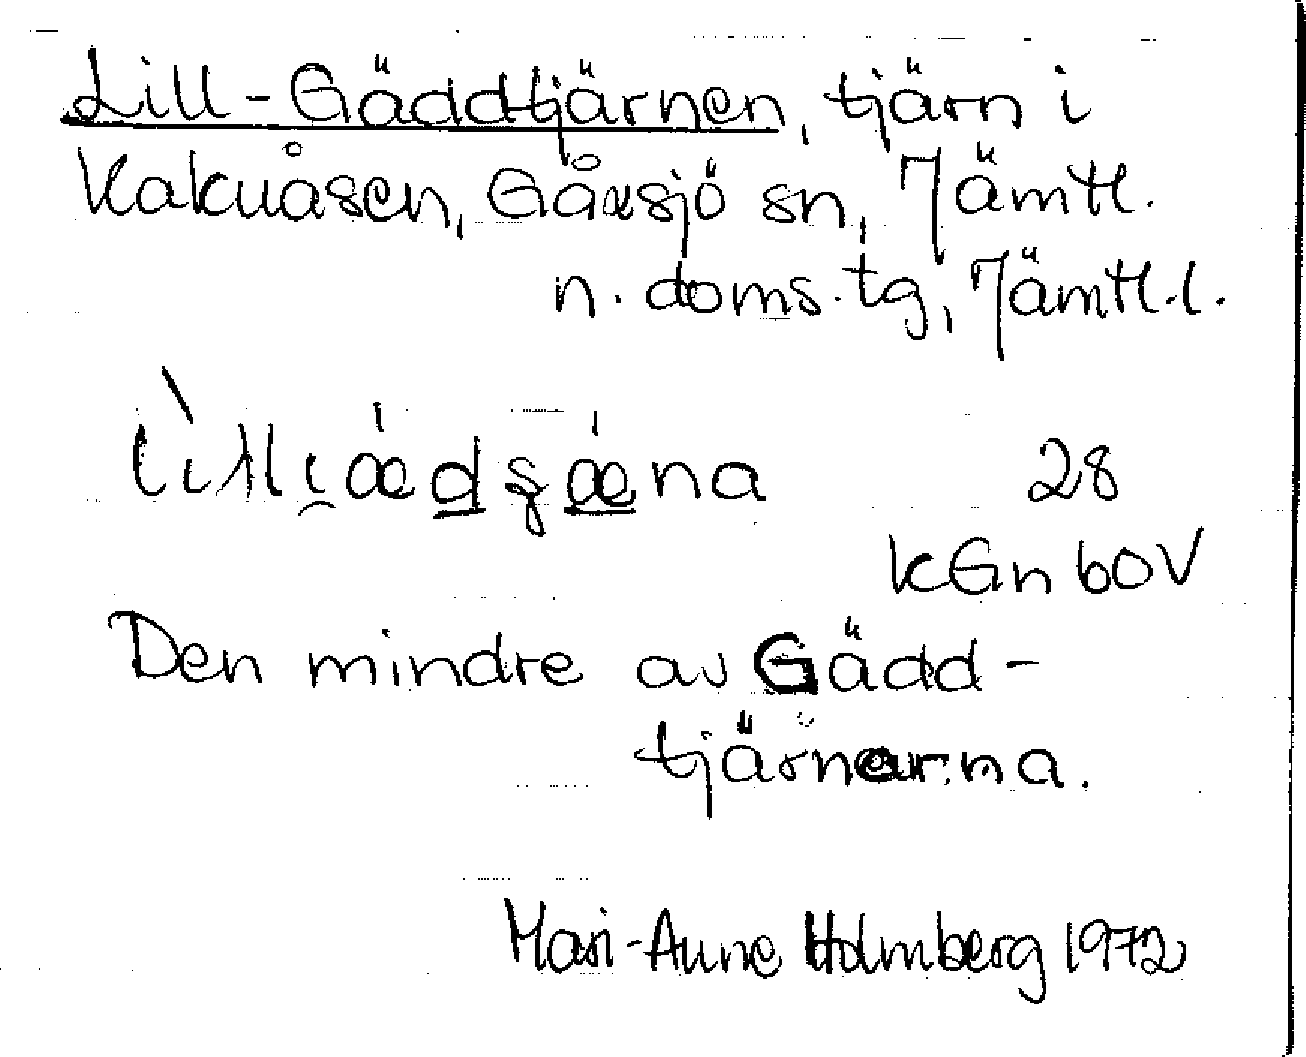 Lill-Gäddtjärnen, tjärn i
Kakuåsen, Gåxsjö sn, Jämtl.
n. doms.tg, Jämtl.l.
28
kGn60V
Den mindre av Gädd-
tjärnarna.
Mari-Anne Holmberg 1972